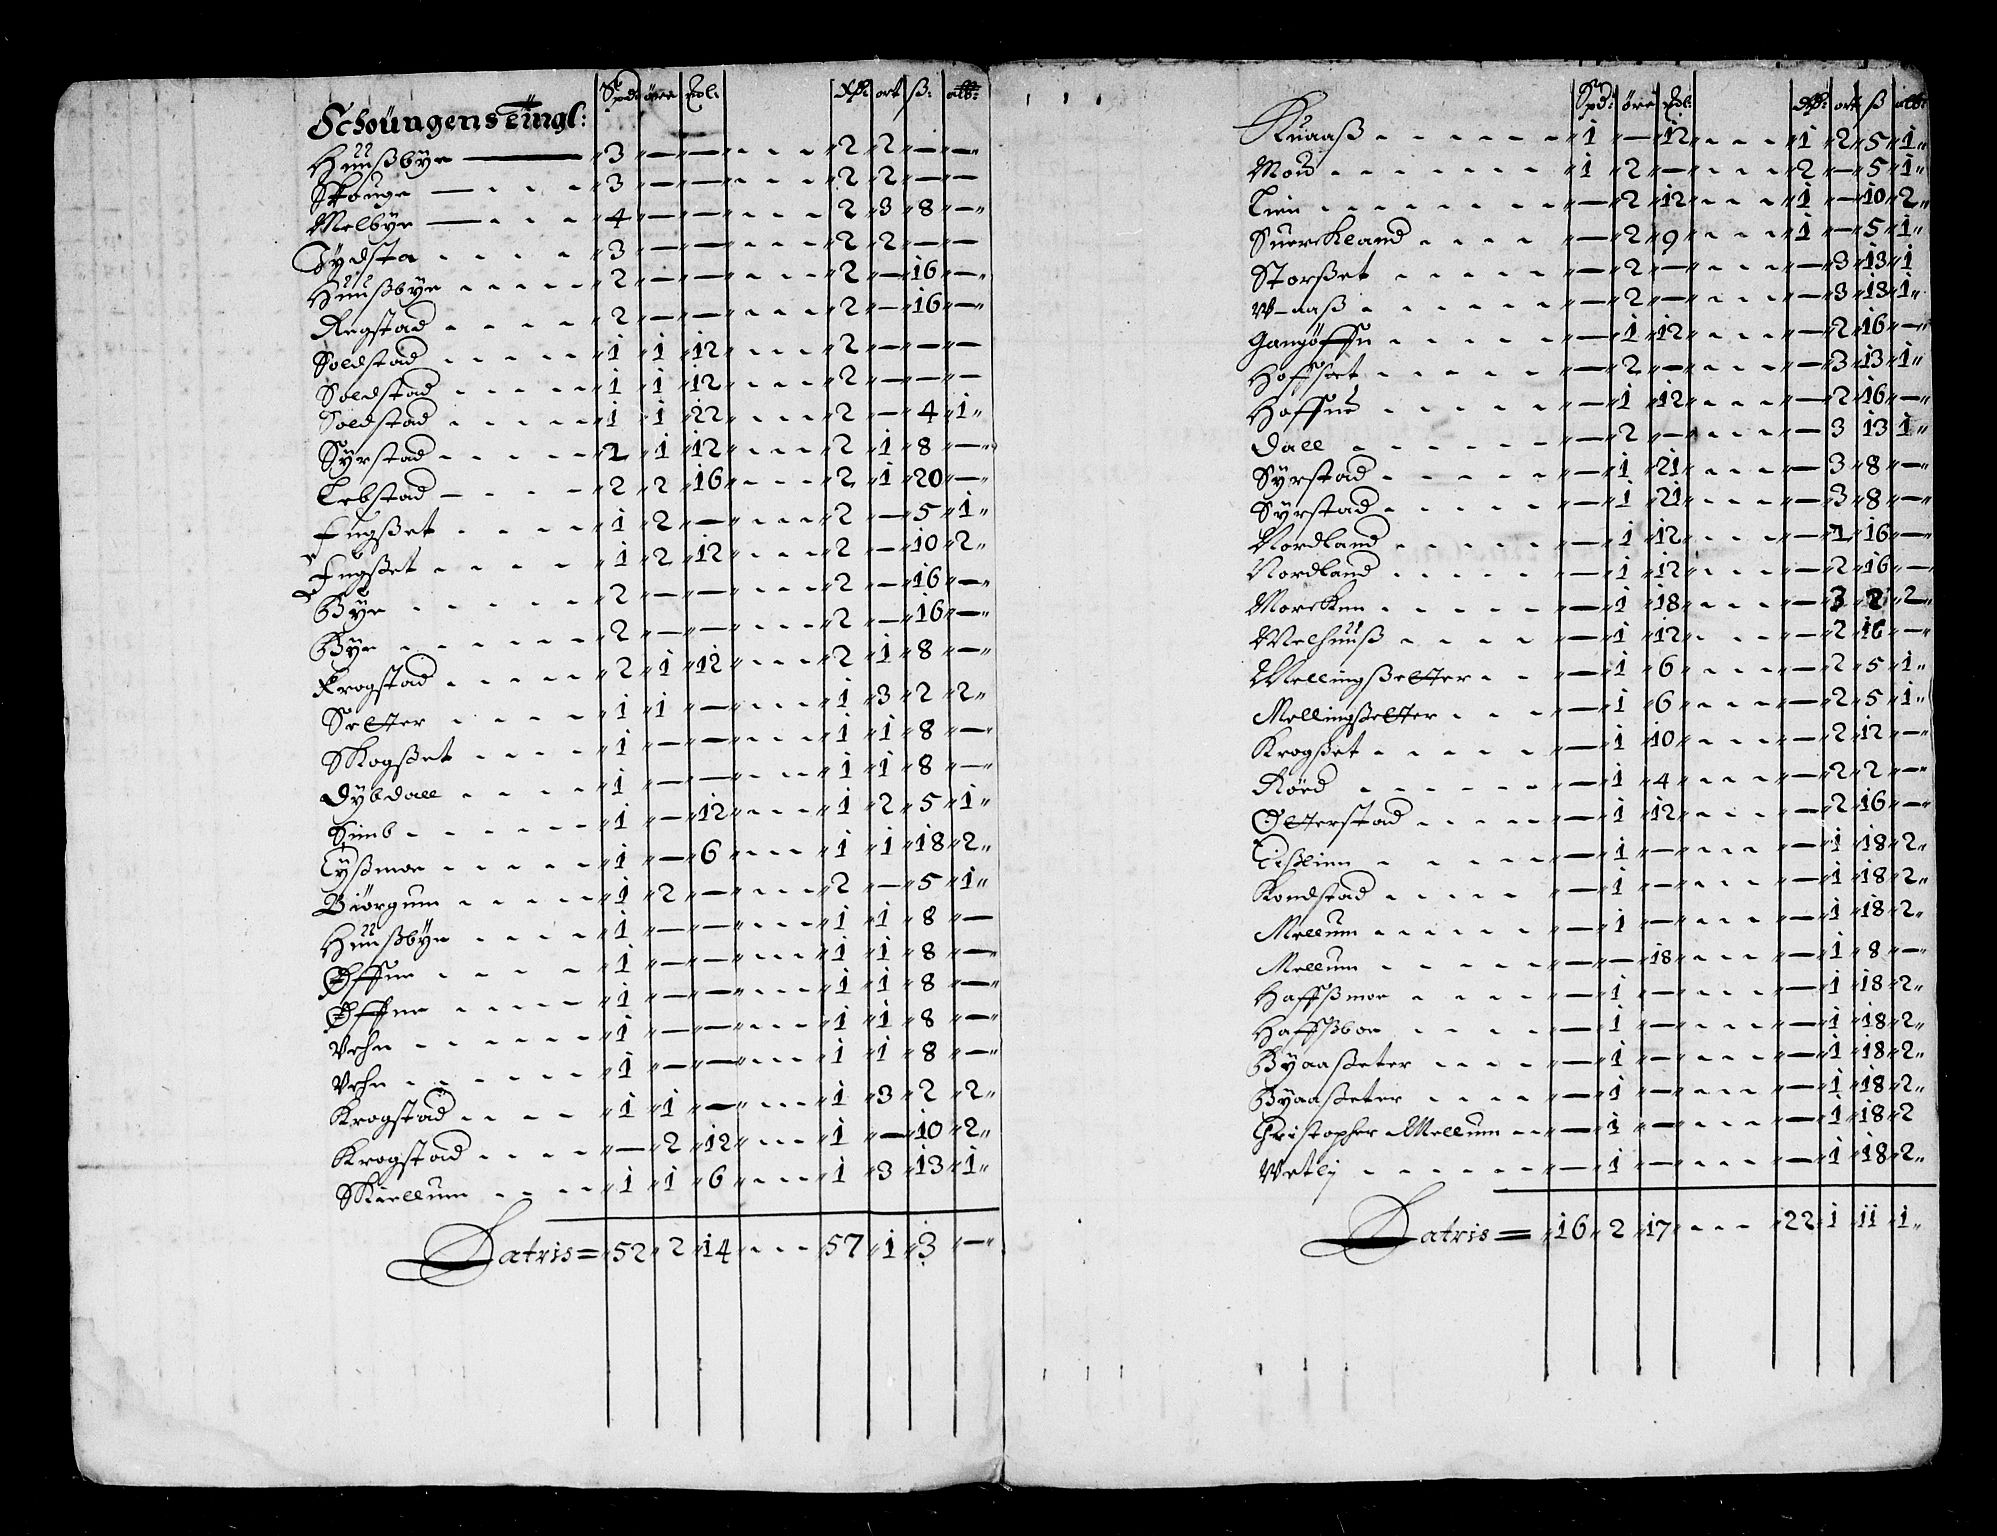 Spd: øre Lb: dlr: ort ß: alb:
Schoüngens Tingl:
Hüüßbye — 3 — — 2 2 — —
Skouge — 3 — — 2 2 — —
Melbye — 4 — — 2 3 8 —
Tydsta 3 — — 2 2 — —
Hüüßbye 2 — — 2 — 16 —
Regstad 2 — — 2 — 16 —
Soldstad 1 1 12 2 — — —
Soldstad 1 1 12 2 — — —
Soldstad 1 1 22 2 — 4 1
Syrstad 2 1 12 2 1 8 —
Lebstad 2 2 16 2 1 20 —
Fugßet 1 2 — 2 — 5 1
Fugßet 1 2 12 2 — 10 2
Bye 2 — — 2 — 16 —
Bye 2 — — 2 — 16 —
Krogstad 2 1 12 2 1 8 —
Setter 1 1 — 1 3 2 2
Skogßet 1 — — 1 1 8 —
Dybdall 1 — — 1 1 8 —
Simb 1 — 12 1 2 5 1
Tyßmoe 1 — 6 1 1 18 2
Biörgum 1 2 — 2 — 5 1
Hüüßbye 1 — — 1 1 8 —
Øffne 1 — — 1 1 8 —
Øffne 1 — — 1 1 8 —
Vehn 1 — — 1 1 8 —
Vehn 1 — — 1 1 8 —
Krogstad 1 1 — 1 3 2 2
Krogstad — 2 12 1 — 10 2
Skiellum 1 1 6 1 3 13 1
Latris = 52 2 14 57 1 3 —
Spd: øre Lb: dlr: ort ß alb:
Kuaaß 1 — 12 1 2 5 1
Moü 1 2 — 2 — 5 1
Lien — 2 12 1 — 10 2
Suerckland — 2 9 1 — 5 1
Storßet — 2 — — 3 13 1
W-aaß — 2 — — 3 13 1
Gangöffn — 1 12 — 2 16 —
Hoffset — 2 — — 3 13 1
Haffne — 1 12 — 2 16 —
Dall — 2 — — 3 13 1
Syrstad — 1 21 — 3 8 —
Syrstad — 1 21 — 3 8 —
Nordland — 1 12 — 2 16 —
Nordland — 1 12 — 2 16 —
Morcken — 1 18 — 3 2 2
Melhuuß — 1 12 — 2 16 —
Mellingßetter — 1 6 — 2 5 1
Mellingßetter — 1 6 — 2 5 1
Krogßet — 1 10 — 2 12 —
Röed — 1 4 — 2 2 —
Øtterstad — 1 12 — 2 16 —
Tißlien — 1 — — 1 18 2
Kondstad — 1 — — 1 18 2
Mellum — 1 — — 1 18 2
Mellum — — 18 — 1 8 —
Haffßmoe — 1 — — 1 18 2
Haffßboe — 1 — — 1 18 2
Byaaßeter — 1 — — 1 18 2
Byaaßeter — 1 — — 1 18 2
Christopher Mellum — 1 — — 1 18 2
Wetlj — 1 — — 1 18 2
Latris = 16 2 17 22 1 11 1